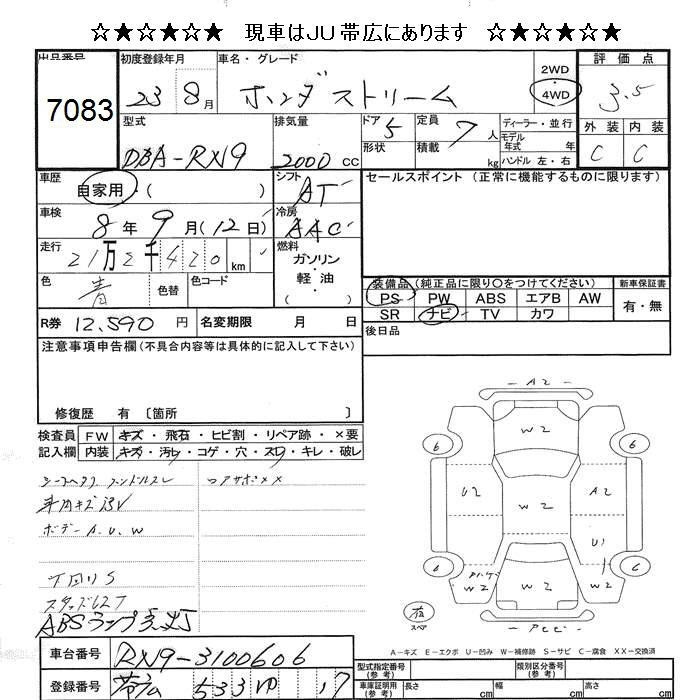 ☆★☆★☆★ 現車はJU帯広にあります ☆★☆★☆★
出品番号 7083
初度登録年月 23 8月
車名・グレード ホンダ ストリーム
2WD
4WD
評価点 3.5
外装 内装
C C
型式 DBA-RN9
排気量 2000 cc
ドア 5 形状
定員 7人
積載 kg
ディーラー・並行
モデル年式 年
ハンドル 左・右
車歴 自家用・( )
シフト AT
車検 8年9月(12日)
冷房 AAC
走行 21万2千420 km
燃料 ガソリン・軽油・( )
色 青 色替 色コード
セールスポイント (正常に機能するものに限ります)
装備品(純正品に限り○をつけてください) 新車保証書
PS PW ABS エアB AW 有・無
SR ナビ TV カワ
後日品
R券 12,590 円 名変期限 月 日
注意事項申告欄(不具合内容等は具体的に記入して下さい)
修復歴 有〔箇所 〕
検査員 FW キズ・飛石・ヒビ割・リペア跡・×要
記入欄 内装 キズ・汚れ・コゲ・穴・スワ・キレ・破レ
ボデー A.U.W
下回りS
ABSランプ点灯
A2
W2
6 6
U2 W2 A2
U1
6 C
W2 W2 W2
有 スペア
A-キズ E-エクボ U-凹み W-補修跡 S-サビ C-腐食 XX-交換済
車台番号 RN9-3100606
登録番号 帯広 533 ゆ 17
型式指定番号(参考) 類別区分番号(参考)
車庫証明用(参考) 長さ cm 幅 cm 高さ cm